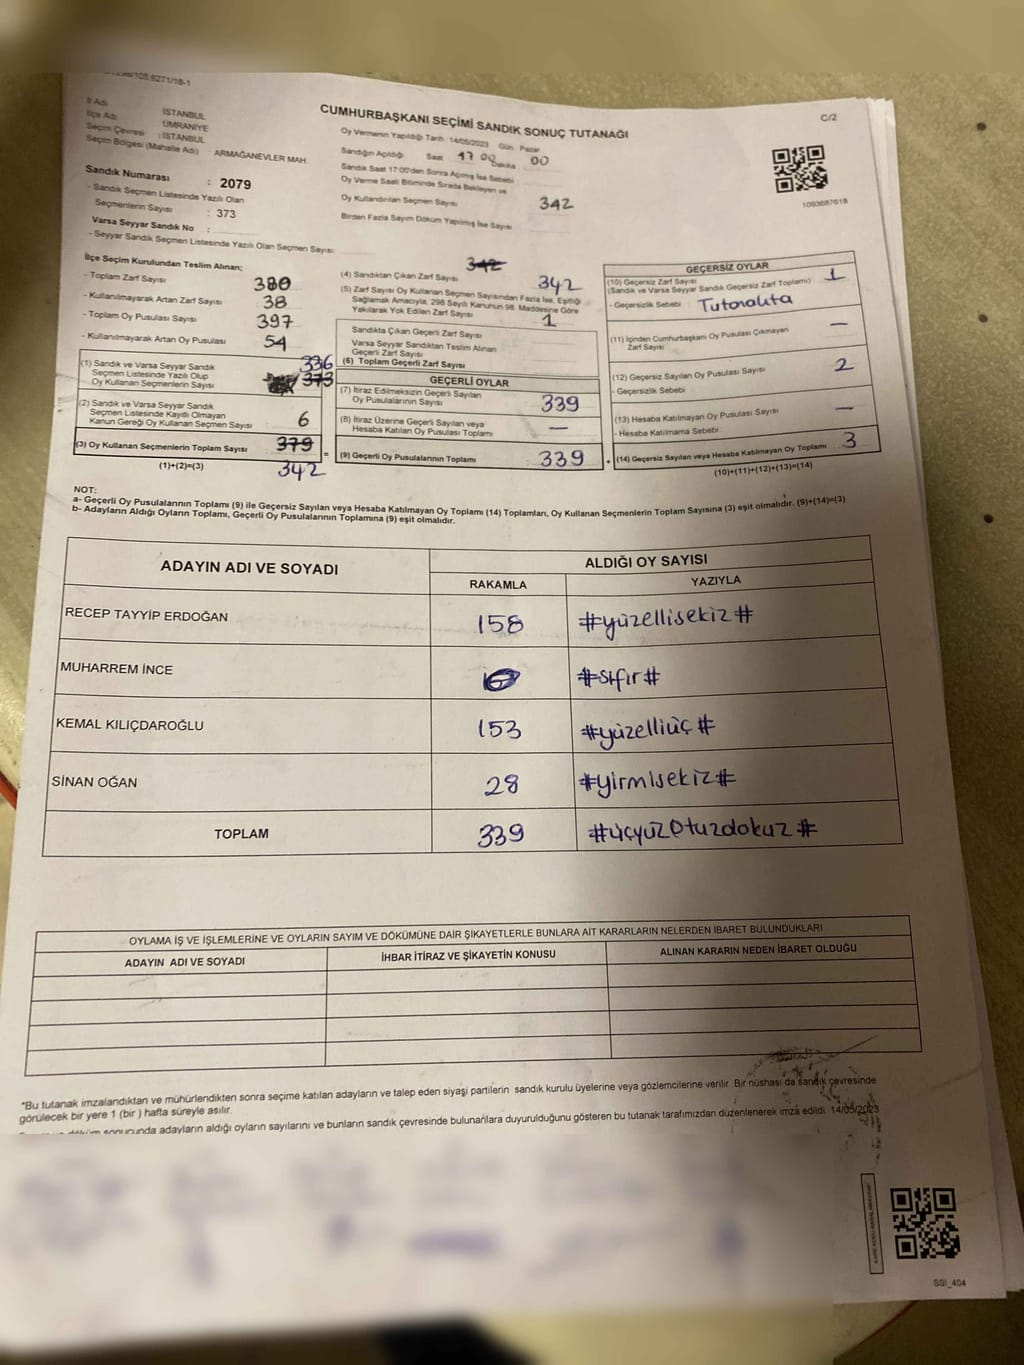 298/105.6271/18-1
C/2
CUMHURBAŞKANI SEÇİMİ SANDIK SONUÇ TUTANAĞI
İl Adı İSTANBUL
İlçe Adı ÜMRANİYE
Seçim Çevresi : İSTANBUL
Seçim Bölgesi (Mahalle Adı) : ARMAĞANEVLER MAH.
Sandık Numarası : 2079
- Sandık Seçmen Listesinde Yazılı Olan
Seçmenlerin Sayısı : 373
Varsa Seyyar Sandık No :
- Seyyar Sandık Seçmen Listesinde Yazılı Olan Seçmen Sayısı:
Oy Vermenin Yapıldığı Tarih 14/05/2023 Gün Pazar
Sandığın Açıldığı Saat 17 00 Dakika 00
Sandık Saat 17:00'den Sonra Açılmış İse Sebebi
Oy Verme Saati Bitiminde Sırada Bekleyen ve
Oy Kullandırılan Seçmen Sayısı 342
Birden Fazla Sayım Döküm Yapılmış İse Sayısı
1093687618
İlçe Seçim Kurulundan Teslim Alınan;
- Toplam Zarf Sayısı 380
- Kullanılmayarak Artan Zarf Sayısı 38
- Toplam Oy Pusulası Sayısı 397
- Kullanılmayarak Artan Oy Pusulası 54
(1) Sandık ve Varsa Seyyar Sandık 336
Seçmen Listesinde Yazılı Olup 373
Oy Kullanan Seçmenlerin Sayısı
(2) Sandık ve Varsa Seyyar Sandık
Seçmen Listesinde Kayıtlı Olmayan
Kanun Gereği Oy Kullanan Seçmen Sayısı 6
(3) Oy Kullanan Seçmenlerin Toplam Sayısı 379
(1)+(2)=(3) 342
342
(4) Sandıktan Çıkan Zarf Sayısı 342
(5) Zarf Sayısı Oy Kullanan Seçmen Sayısından Fazla İse, Eşitliği
Sağlamak Amacıyla, 298 Sayılı Kanunun 98. Maddesine Göre
Yakılarak Yok Edilen Zarf Sayısı 1
Sandıkta Çıkan Geçerli Zarf Sayısı
Varsa Seyyar Sandıktan Teslim Alınan
Geçerli Zarf Sayısı
(6) Toplam Geçerli Zarf Sayısı
GEÇERLİ OYLAR
(7) İtiraz Edilmeksizin Geçerli Sayılan
Oy Pusulalarının Sayısı 339
(8) İtiraz Üzerine Geçerli Sayılan veya
Hesaba Katılan Oy Pusulası Toplamı —
= (9) Geçerli Oy Pusulalarının Toplamı 339
GEÇERSİZ OYLAR
(10) Geçersiz Zarf Sayısı 1
(Sandık ve Varsa Seyyar Sandık Geçersiz Zarf Toplamı)
- Geçersizlik Sebebi Tutanakta
(11) İçinden Cumhurbaşkanı Oy Pusulası Çıkmayan
Zarf Sayısı —
(12) Geçersiz Sayılan Oy Pusulası Sayısı 2
- Geçersizlik Sebebi
(13) Hesaba Katılmayan Oy Pusulası Sayısı —
- Hesaba Katılmama Sebebi
+ (14) Geçersiz Sayılan veya Hesaba Katılmayan Oy Toplamı 3
(10)+(11)+(12)+(13)=(14)
NOT:
a- Geçerli Oy Pusulalarının Toplamı (9) ile Geçersiz Sayılan veya Hesaba Katılmayan Oy Toplamı (14) Toplamları, Oy Kullanan Seçmenlerin Toplam Sayısına (3) eşit olmalıdır. (9)+(14)=(3)
b- Adayların Aldığı Oyların Toplamı, Geçerli Oy Pusulalarının Toplamına (9) eşit olmalıdır.
ADAYIN ADI VE SOYADI ALDIĞI OY SAYISI
RAKAMLA YAZIYLA
RECEP TAYYİP ERDOĞAN 158 #yüzellisekiz#
MUHARREM İNCE #sıfır#
KEMAL KILIÇDAROĞLU 153 #yüzelliüç#
SİNAN OĞAN 28 #yirmisekiz#
TOPLAM 339 #üçyüzotuzdokuz#
OYLAMA İŞ VE İŞLEMLERİNE VE OYLARIN SAYIM VE DÖKÜMÜNE DAİR ŞİKAYETLERLE BUNLARA AİT KARARLARIN NELERDEN İBARET BULUNDUKLARI
ADAYIN ADI VE SOYADI İHBAR İTİRAZ VE ŞİKAYETİN KONUSU ALINAN KARARIN NEDEN İBARET OLDUĞU
*Bu tutanak imzalandıktan ve mühürlendikten sonra seçime katılan adayların ve talep eden siyasi partilerin sandık kurulu üyelerine veya gözlemcilerine verilir. Bir nüshası da sandık çevresinde
görülecek bir yere 1 (bir) hafta süreyle asılır.
döküm sonucunda adayların aldığı oyların sayılarını ve bunların sandık çevresinde bulunanlara duyurulduğunu gösteren bu tutanak tarafımızdan düzenlenerek imza edildi. 14/05/2023
SSI_404